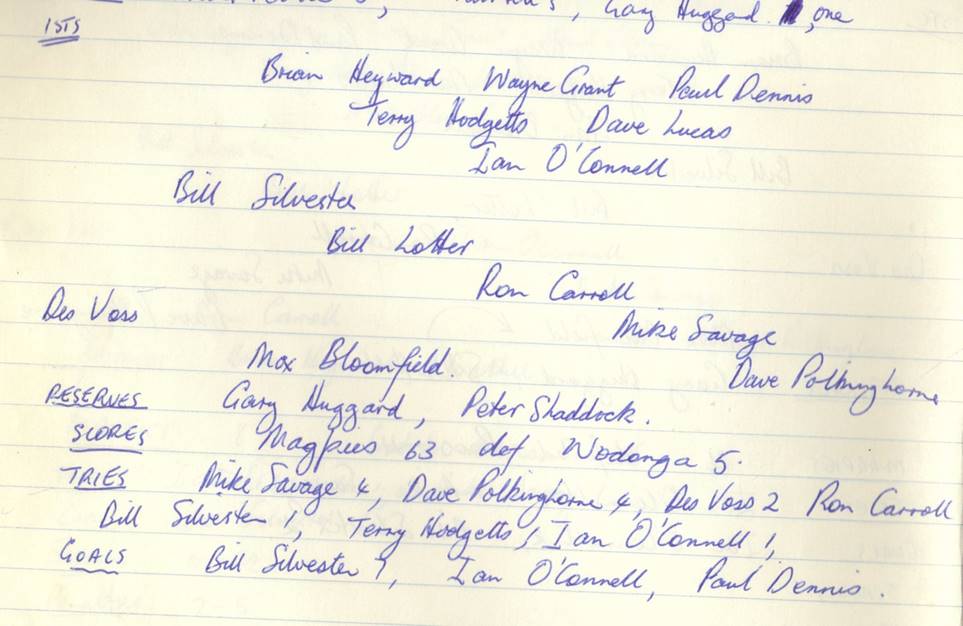 Gary Huggard. , one
1STS
Brian Heyward Wayne Grant Paul Dennis
Terry Hodgetts Dave Lucas
Ian O'Connell
Bill Silvester
Bill Lotter
Ron Carroll
Des Voss
Mike Savage
Max Bloomfield. Dave Polkinghorne
RESERVES Gary Huggard, Peter Shaddock.
SCORES Magpies 63 def Wodonga 5.
TRIES Mike Savage 4, Dave Polkinghorne 4, Des Voss 2 Ron Carroll
Bill Silvester 1, Terry Hodgetts 1, Ian O'Connell 1,
GOALS Bill Silvester 7, Ian O'Connell, Paul Dennis.